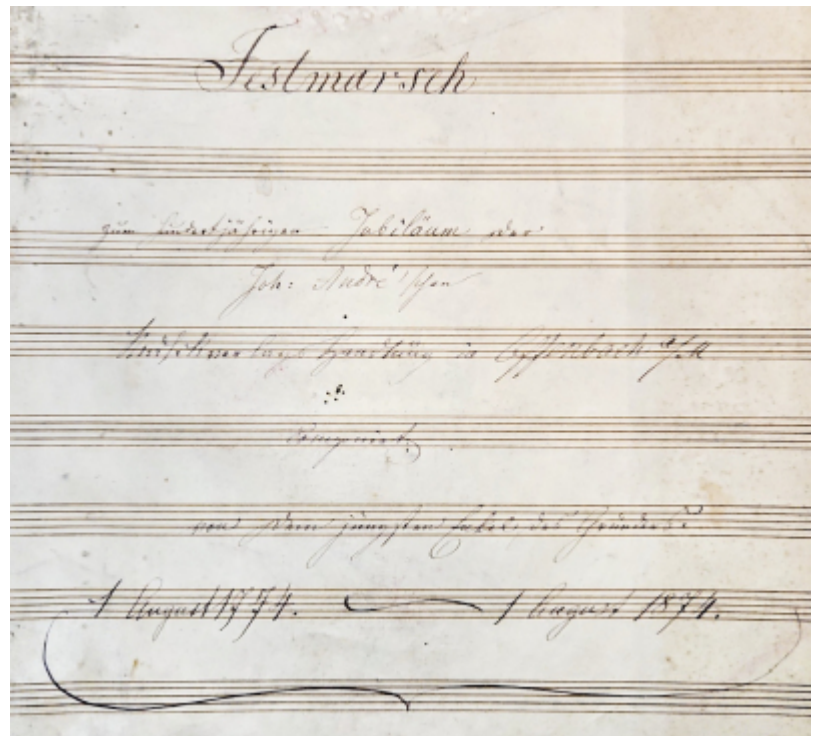 Festmarsch
zum hundertjährigen Jubiläum der
Joh: André'schen
Musikverlags Handlung in Offenbach a/M
Componirt
von dem jüngsten Enkel des Gründers.
1 August 1774. 1 August 1874.